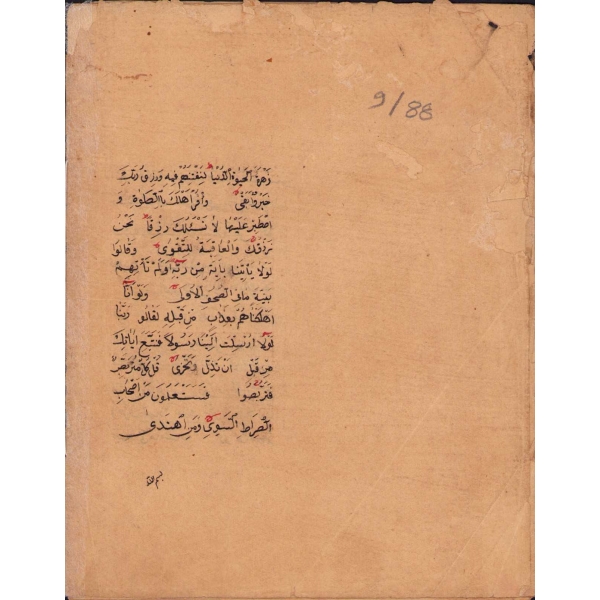 9/88
زهرة الحيوة الدنيا لنفتنهم فيه ورزق ربك
خير وابقى وأمر اهلك بالصلوة و
اصطبر عليها لا نسئلك رزقا نحن
نرزقك والعاقبة للتقوى وقالوا
لولا يأتينا باية من ربه اولم تأتهم
بينة ما في الصحف الاولى ولو انا
اهلكناهم بعذاب من قبله لقالوا ربنا
لولا ارسلت الينا رسولا فنتبع اياتك
من قبل ان نذل ونخزى قل كل متربص
فتربصوا فستعلمون من اصحاب
الصراط السوي ومن اهتدى